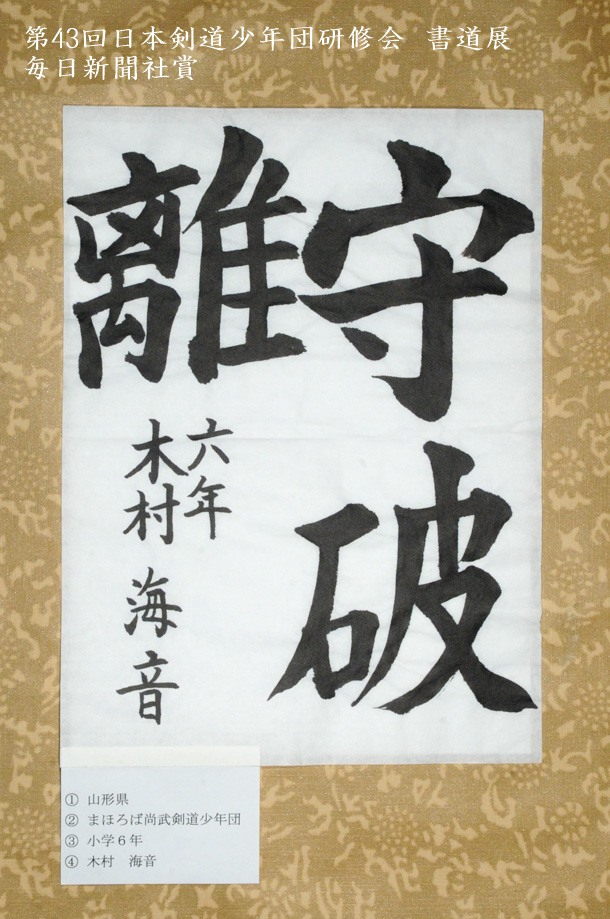 第43回日本剣道少年団研修会　書道展
毎日新聞社賞
守破
離
六年
木村 海音
① 山形県
② まほろば尚武剣道少年団
③ 小学６年
④ 木村　海音